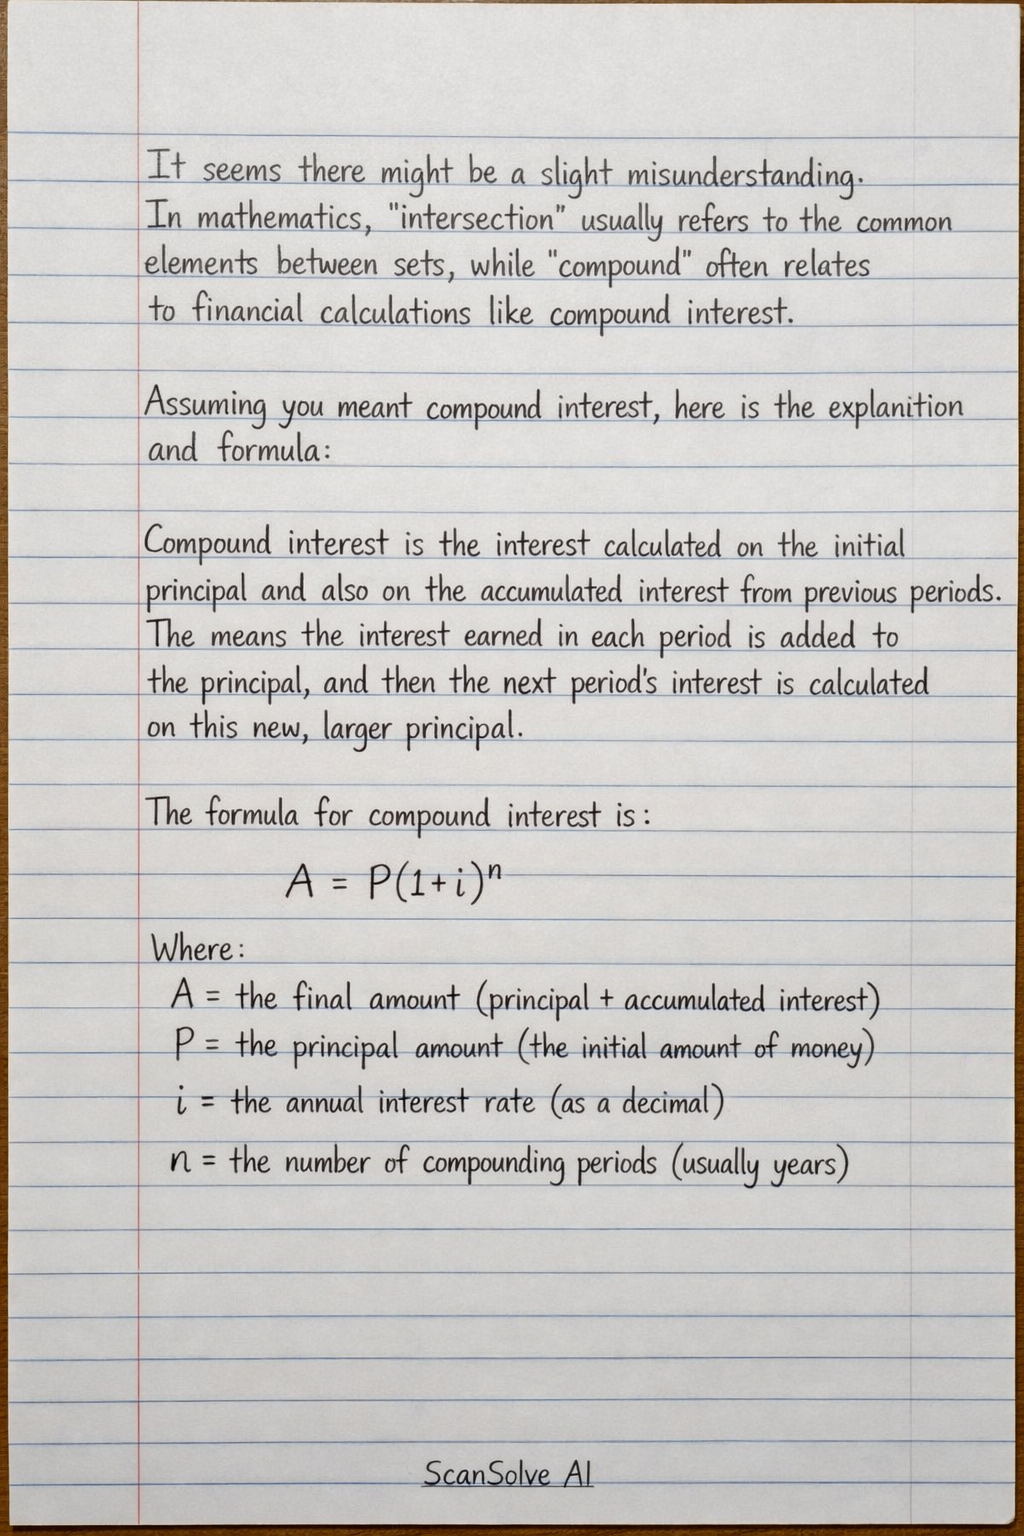 It seems there might be a slight misunderstanding.
In mathematics, "intersection" usually refers to the common
elements between sets, while "compound" often relates
to financial calculations like compound interest.
Assuming you meant compound interest, here is the explanition
and formula:
Compound interest is the interest calculated on the initial
principal and also on the accumulated interest from previous periods.
The means the interest earned in each period is added to
the principal, and then the next period's interest is calculated
on this new, larger principal.
The formula for compound interest is:
A = P(1+i)ⁿ
Where:
A = the final amount (principal + accumulated interest)
P = the principal amount (the initial amount of money)
i = the annual interest rate (as a decimal)
n = the number of compounding periods (usually years)
ScanSolve AI